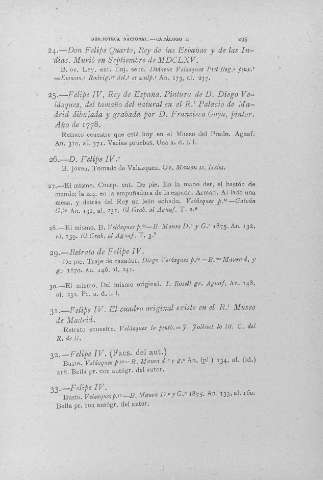 BIBLIOTECA NACIONAL.—CATÁLOGO
24.—Don Felipe Quarto, Rey de las Españas y de las In-
dias. Murió en Septiembre de MDCLXV.
B. ov. Ley. ext. Inj. octv. Didacus Velazquez Pict Reg.
An. 175, Cl. 237.
25.—Felipe IV, Rey de España. Pintura de D. Diego Ve-
lázquez, del tamaño del natural en el R.l Palacio de Ma-
drid dibujada y grabada por D. Francisco Goya, pintor.
Año de 1778.
Retrato ecuestre que está hoy en el Museo del Prado. Aguaf.
An. 310, al. 371. Varias pruebas. Una a. d. l. l.
26.—D. Felipe IV.
B. joven. Tomado de Velazquez. Gr.
27.—El mismo. Cuerp. ent. De pie. En la mano der. el bastón de
mando; la izq. en la empuñadura de la espada. Armad. Al lado una
mesa, y detrás del Rey un león echado. Velazquez p.
G. An. 132, al. 231. El Grab. al Aguaf. T. 2.º
28.—El mismo. B. Velazquez p.—B. Maura D. y G. 1875. An. 132,
al. 159. El Grab. al Aguaf. T. 3.º
29.—Retrato de Felipe IV.
De pie. Traje de cazador. Diego Velazquez p.—B. Maura d. y
g. 1870. An. 146, al. 241.
30.—El mismo. Del mismo original. J. Roselló gr. Aguaf. An. 148,
al. 232. Pr. a. d. l. l.
31.—Felipe IV. El cuadro original existe en el R.l Museo
de Madrid.
Retrato ecuestre. Velazquez lo pintó.—J. Jollivet lo lit. C. del
R. de
32.—Felipe IV. (Facs. del aut.)
Busto. Velazquez p.—B. Maura d. g. An. (pl.) 134, al. (id.)
218. Bella pr. con autógr. del autor.
33.—Felipe IV.
Busto. Velazquez p.—B. Maura D. y G. 1875. An. 133, al. 160.
Bella pr. con autógr. del autor.